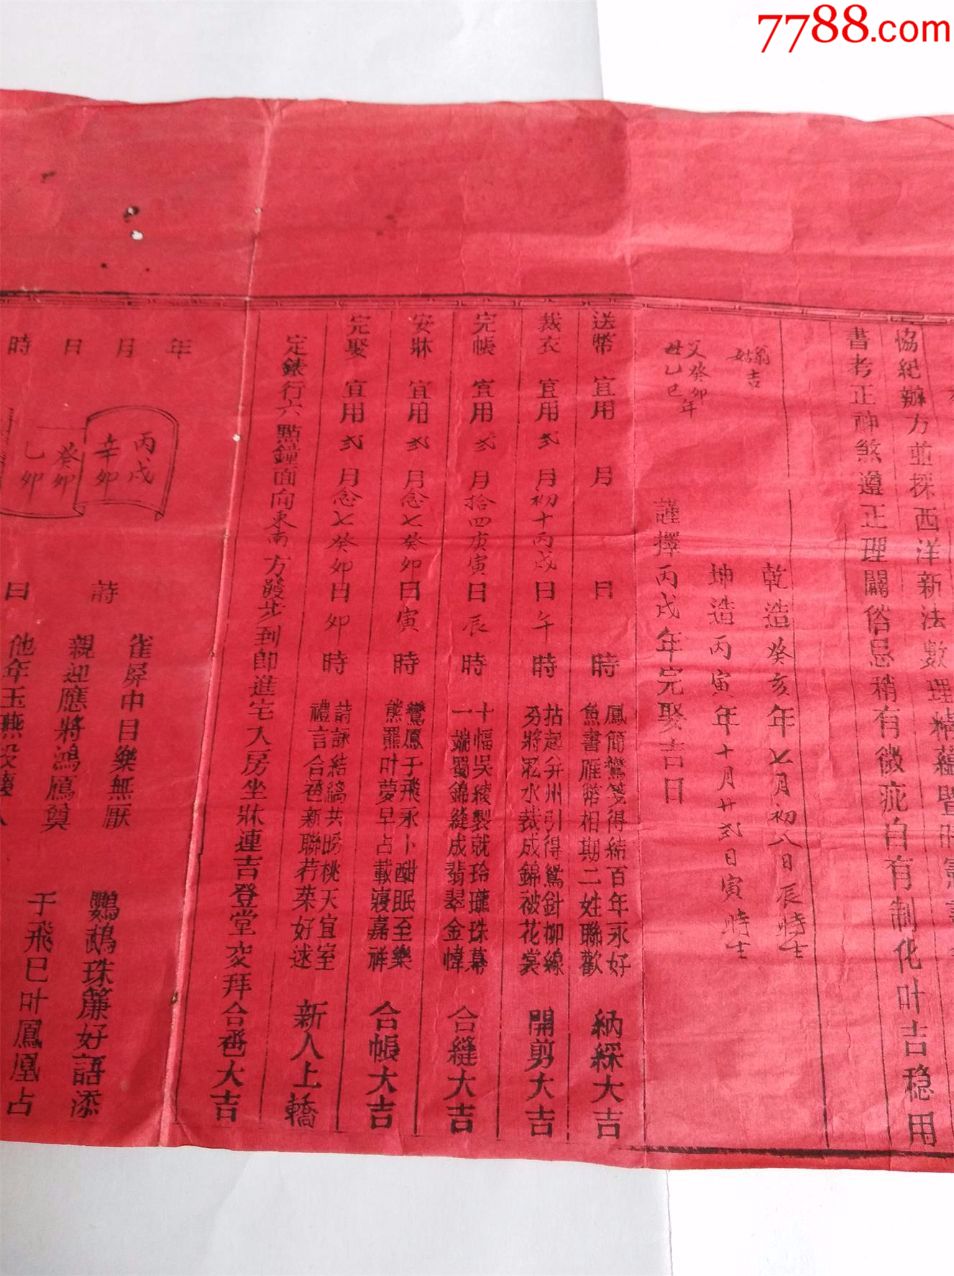 7788.com
協紀辦方並採西洋新法數理精蘊暨時憲
書考正神煞遵正理闢俗忌稍有微疵自有制化叶吉穩用
乾造癸亥年七月初八日辰時生
坤造丙寅年十月廿弍日寅時生
翁姑吉
父癸卯年
母乙巳
謹擇丙戌年完娶吉日
送幣 宜用 月 日 時 鳳簡鸞箋得結百年永好 魚書雁幣相期二姓聯歡 納綵大吉
裁衣 宜用弍月初十丙戌日午時 拈起并州引得鴛針柳線 夯將沠水裁成錦被花裳 開剪大吉
完帳 宜用弍月拾四庚寅日辰時 十幅吳綾製就玲瓏珠幕 一端蜀錦縫成翡翠金幃 合縫大吉
安牀 宜用弍月念七癸卯日寅時 鸞鳳于飛永卜酣眠至樂 熊羆叶夢早占載寢嘉祥 合帳大吉
完娶 宜用弍月念七癸卯日卯時 詩詠結縭共賜桃夭宜室 禮言合卺新聯荇菜好逑 新人上轎
定錶行六點鐘面向東南方發步到即進宅入房坐牀連吉登堂交拜合卺大吉
年 月 日 時
丙戌
辛卯
癸卯
乙卯
詩 曰
雀屏中目樂無厭 鸚鵡珠簾好語添
親迎應將鴻鴈奠 于飛巳叶鳳凰占
他年玉燕投